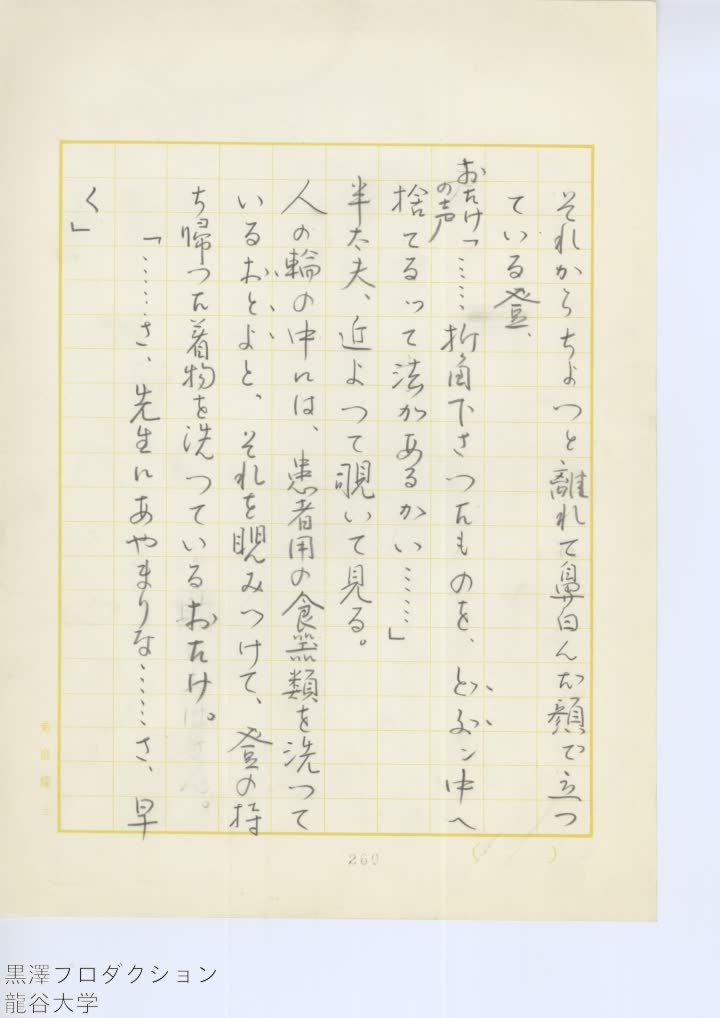 それからちょつと離れて鼻白んだ顔で立つ
ている登、
おたけの声「……折角下さつたものを、どぶン中へ
捨てるって法があるかい……」
半太夫、近よつて覗いて見る。
人の輪の中には、患者用の食器類を洗つて
いるおとよと、それを睨みつけて、登の持
ち帰つた着物を洗つているおたけ。
「……さ、先生にあやまりな……さ、早
く」
260
黒澤プロダクション
龍谷大学